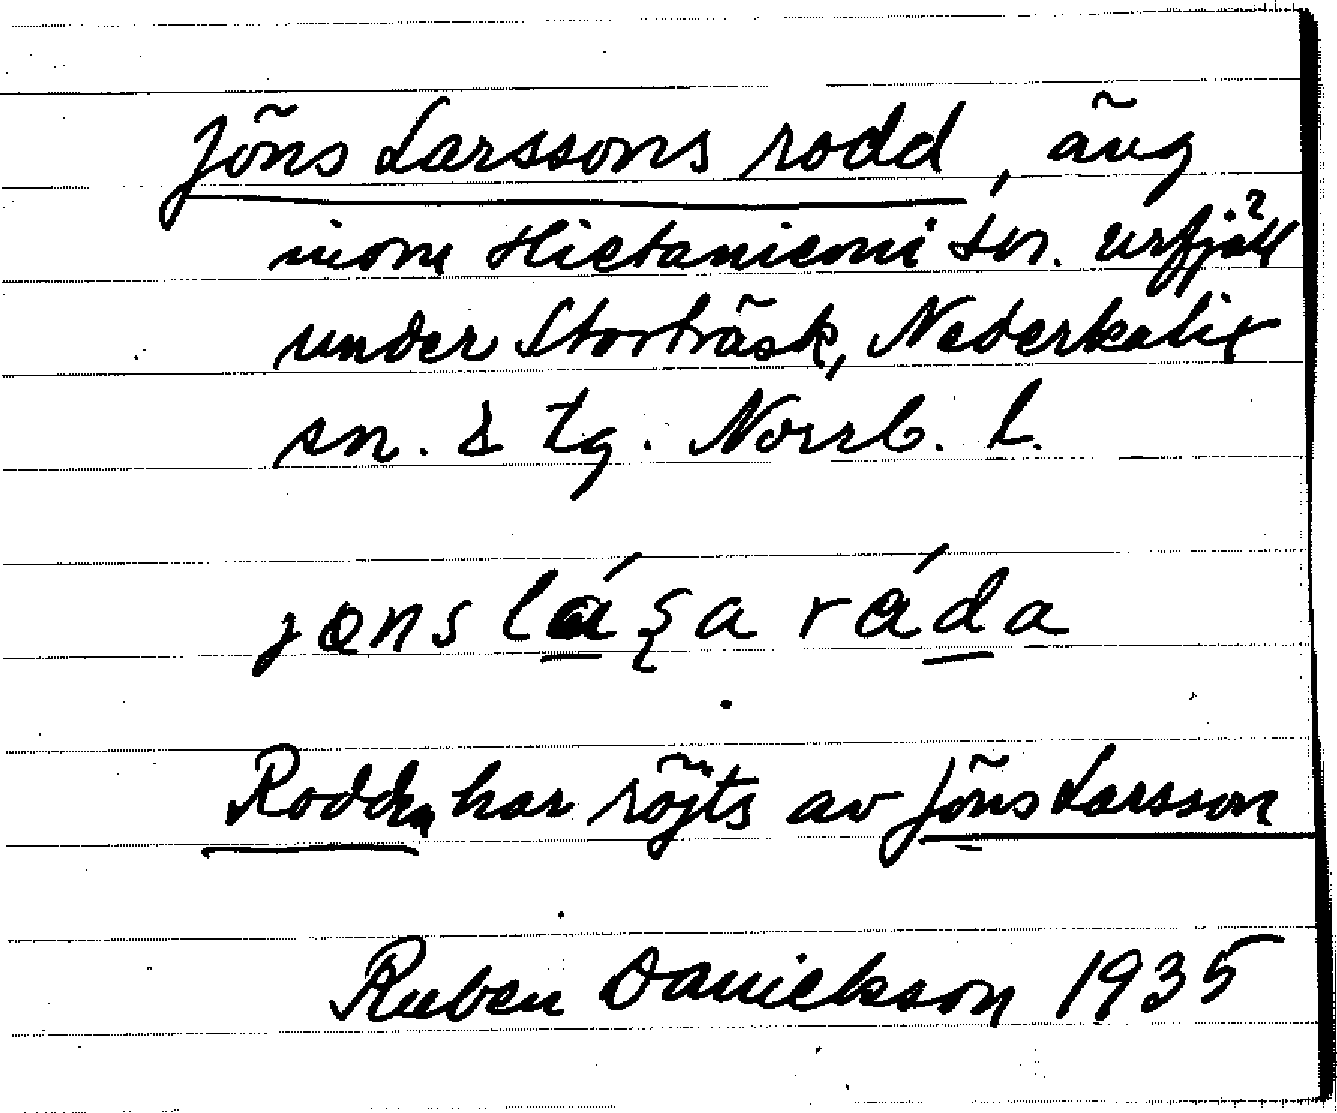 Jöns Larssons rodd, äng
inom Hietaniemi sn. urfjäll
under Storträsk, Nederkalix
sn. & tg. Norrb. L.
jɵns láʂa ráda
Rodden har röjts av Jöns Larsson
Ruben Danielsson 1935